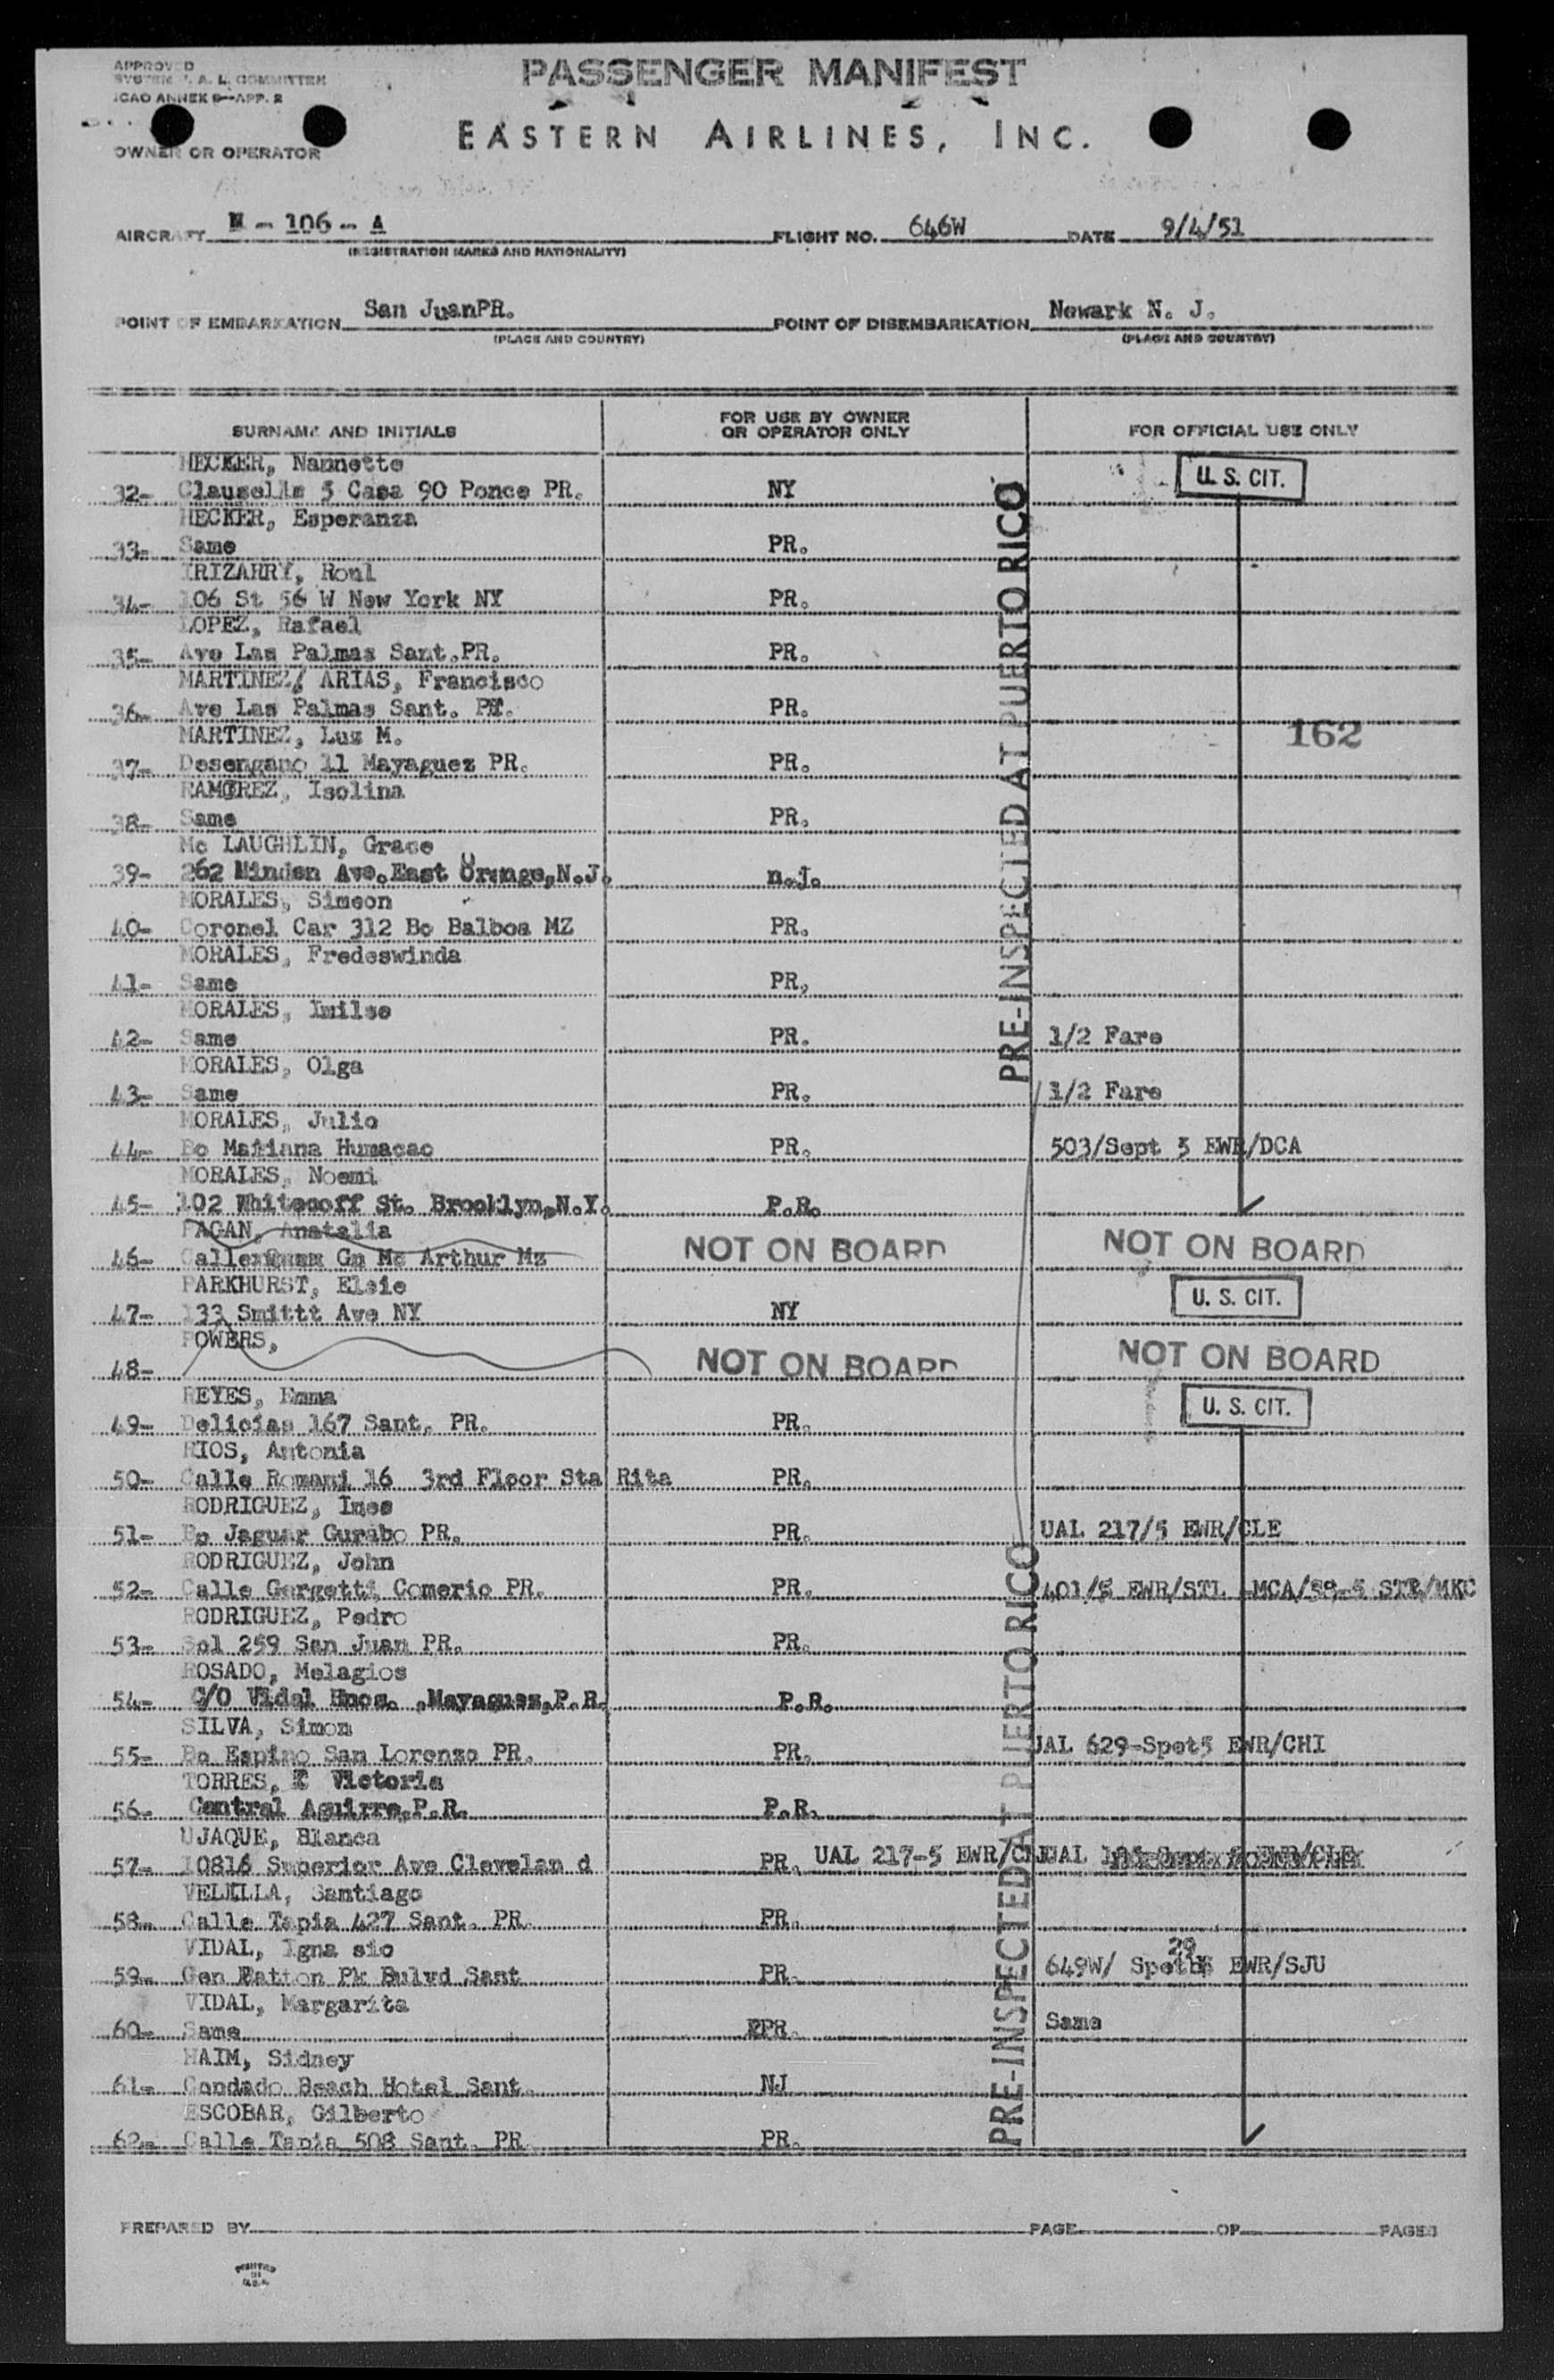 APPROVED
SYSTEM F. A. L. COMMITTEE
ICAO ANNEX 9—APP. 2
PASSENGER MANIFEST
EASTERN AIRLINES, INC.
OWNER OR OPERATOR
AIRCRAFT N - 106 - A FLIGHT NO. 646W DATE 9/4/51
(REGISTRATION MARKS AND NATIONALITY)
POINT OF EMBARKATION San JuanPR. POINT OF DISEMBARKATION Newark N. J.
(PLACE AND COUNTRY) (PLACE AND COUNTRY)
SURNAME AND INITIALS FOR USE BY OWNER OR OPERATOR ONLY FOR OFFICIAL USE ONLY
HECKER, Nannette U. S. CIT.
32- Clausells 5 Casa 90 Ponce PR. NY
HECKER, Esperanza
33- Same PR.
IRIZARRY, Roul
34- 106 St 56 W New York NY PR.
LOPEZ, Rafael
35- Ave Las Palmas Sant.PR. PR.
MARTINEZ/ ARIAS, Francisco
36- Ave Las Palmas Sant. PR. PR.
162
MARTINEZ, Luz M.
37- Desengano 11 Mayaguez PR. PR.
RAMIREZ, Isolina
38- Same PR.
Mc LAUGHLIN, Grace
39- 262 Minden Ave.East Orange,N.J. n.j.
MORALES, Simeon
40- Coronel Car 312 Bo Balboa MZ PR.
MORALES, Fredeswinda
41- Same PR,
MORALES, Imilse
42- Same PR. 1/2 Fare
MORALES, Olga
43- Same PR. 1/2 Fare
MORALES, Julio
44- Bo Mariana Humacao PR. 503/Sept 5 EWR/DCA
MORALES, Noemi
45- 102 Whitecoff St. Brooklyn,N.Y. P.R.
PAGAN, Anatalia
46- Calle Gn Mc Arthur Mz NOT ON BOARD NOT ON BOARD
PARKHURST, Elsie U. S. CIT.
47- 133 Smittt Ave NY NY
POWERS,
48- NOT ON BOARD NOT ON BOARD
REYES, Emma U. S. CIT.
49- Delicias 167 Sant. PR. PR.
RIOS, Antonia
50- Calle Romani 16 3rd Floor Sta Rita PR.
RODRIGUEZ, Ines
51- Bo Jaguar Gurabo PR. PR. UAL 217/5 EWR/CLE
RODRIGUEZ, John
52- Calle Gergetti Comerio PR. PR. 401/5 EWR/STL -MCA/58-5 STL/MKC
RODRIGUEZ, Pedro
53- Sol 259 San Juan PR. PR.
ROSADO, Melagios
54- C/O Vidal Hnos. ,Mayaguez,P.R. P.R.
SILVA, Simon
55- Bo Espino San Lorenzo PR. PR. UAL 629-Spet5 EWR/CHI
TORRES, Victoria
56- Central Aguirre,P.R. P.R.
UJAQUE, Blanca
57- 10816 Superior Ave Clevelan d PR. UAL 217-5 EWR/CLE UAL
VELILLA, Santiago
58- Calle Tapia 427 Sant. PR PR.
VIDAL, Igna sio
59- Gen Patton Pk Bulvd Sant PR. 649W/ Spet 29 EWR/SJU
VIDAL, Margarita
60- Same PR. Same
HAIM, Sidney
61- Condado Beach Hotel Sant. NJ
ESCOBAR, Gilberto
62- Calle Tapia 508 Sant. PR PR.
PRE-INSPECTED AT PUERTO RICO
PRE-INSPECTED AT PUERTO RICO
PREPARED BY PAGE OF PAGES
PRINTED
IN
U.S.A.